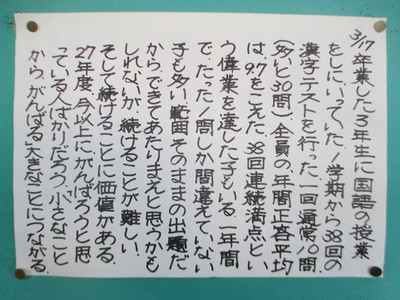 3/17 卒業した3年生に国語の授業
をしにいっていた。1学期から38回の
漢字テストを行った。一回通常10問
(多いと30問)、全員の年間正答平均
は、9.7をこえた。38回連続満点とい
う偉業を達した子もいる。一年間
で、たった1問しか間違えていない
子も多い。範囲そのままの出題だ
から、できてあたりまえと思うかも
しれないが、続けることが難しい。
そして続けることに価値がある。
27年度、今以上に、がんばろうと思
っている人ばかりだろう。小さなこと
から、がんばる。大きなことにつながる。